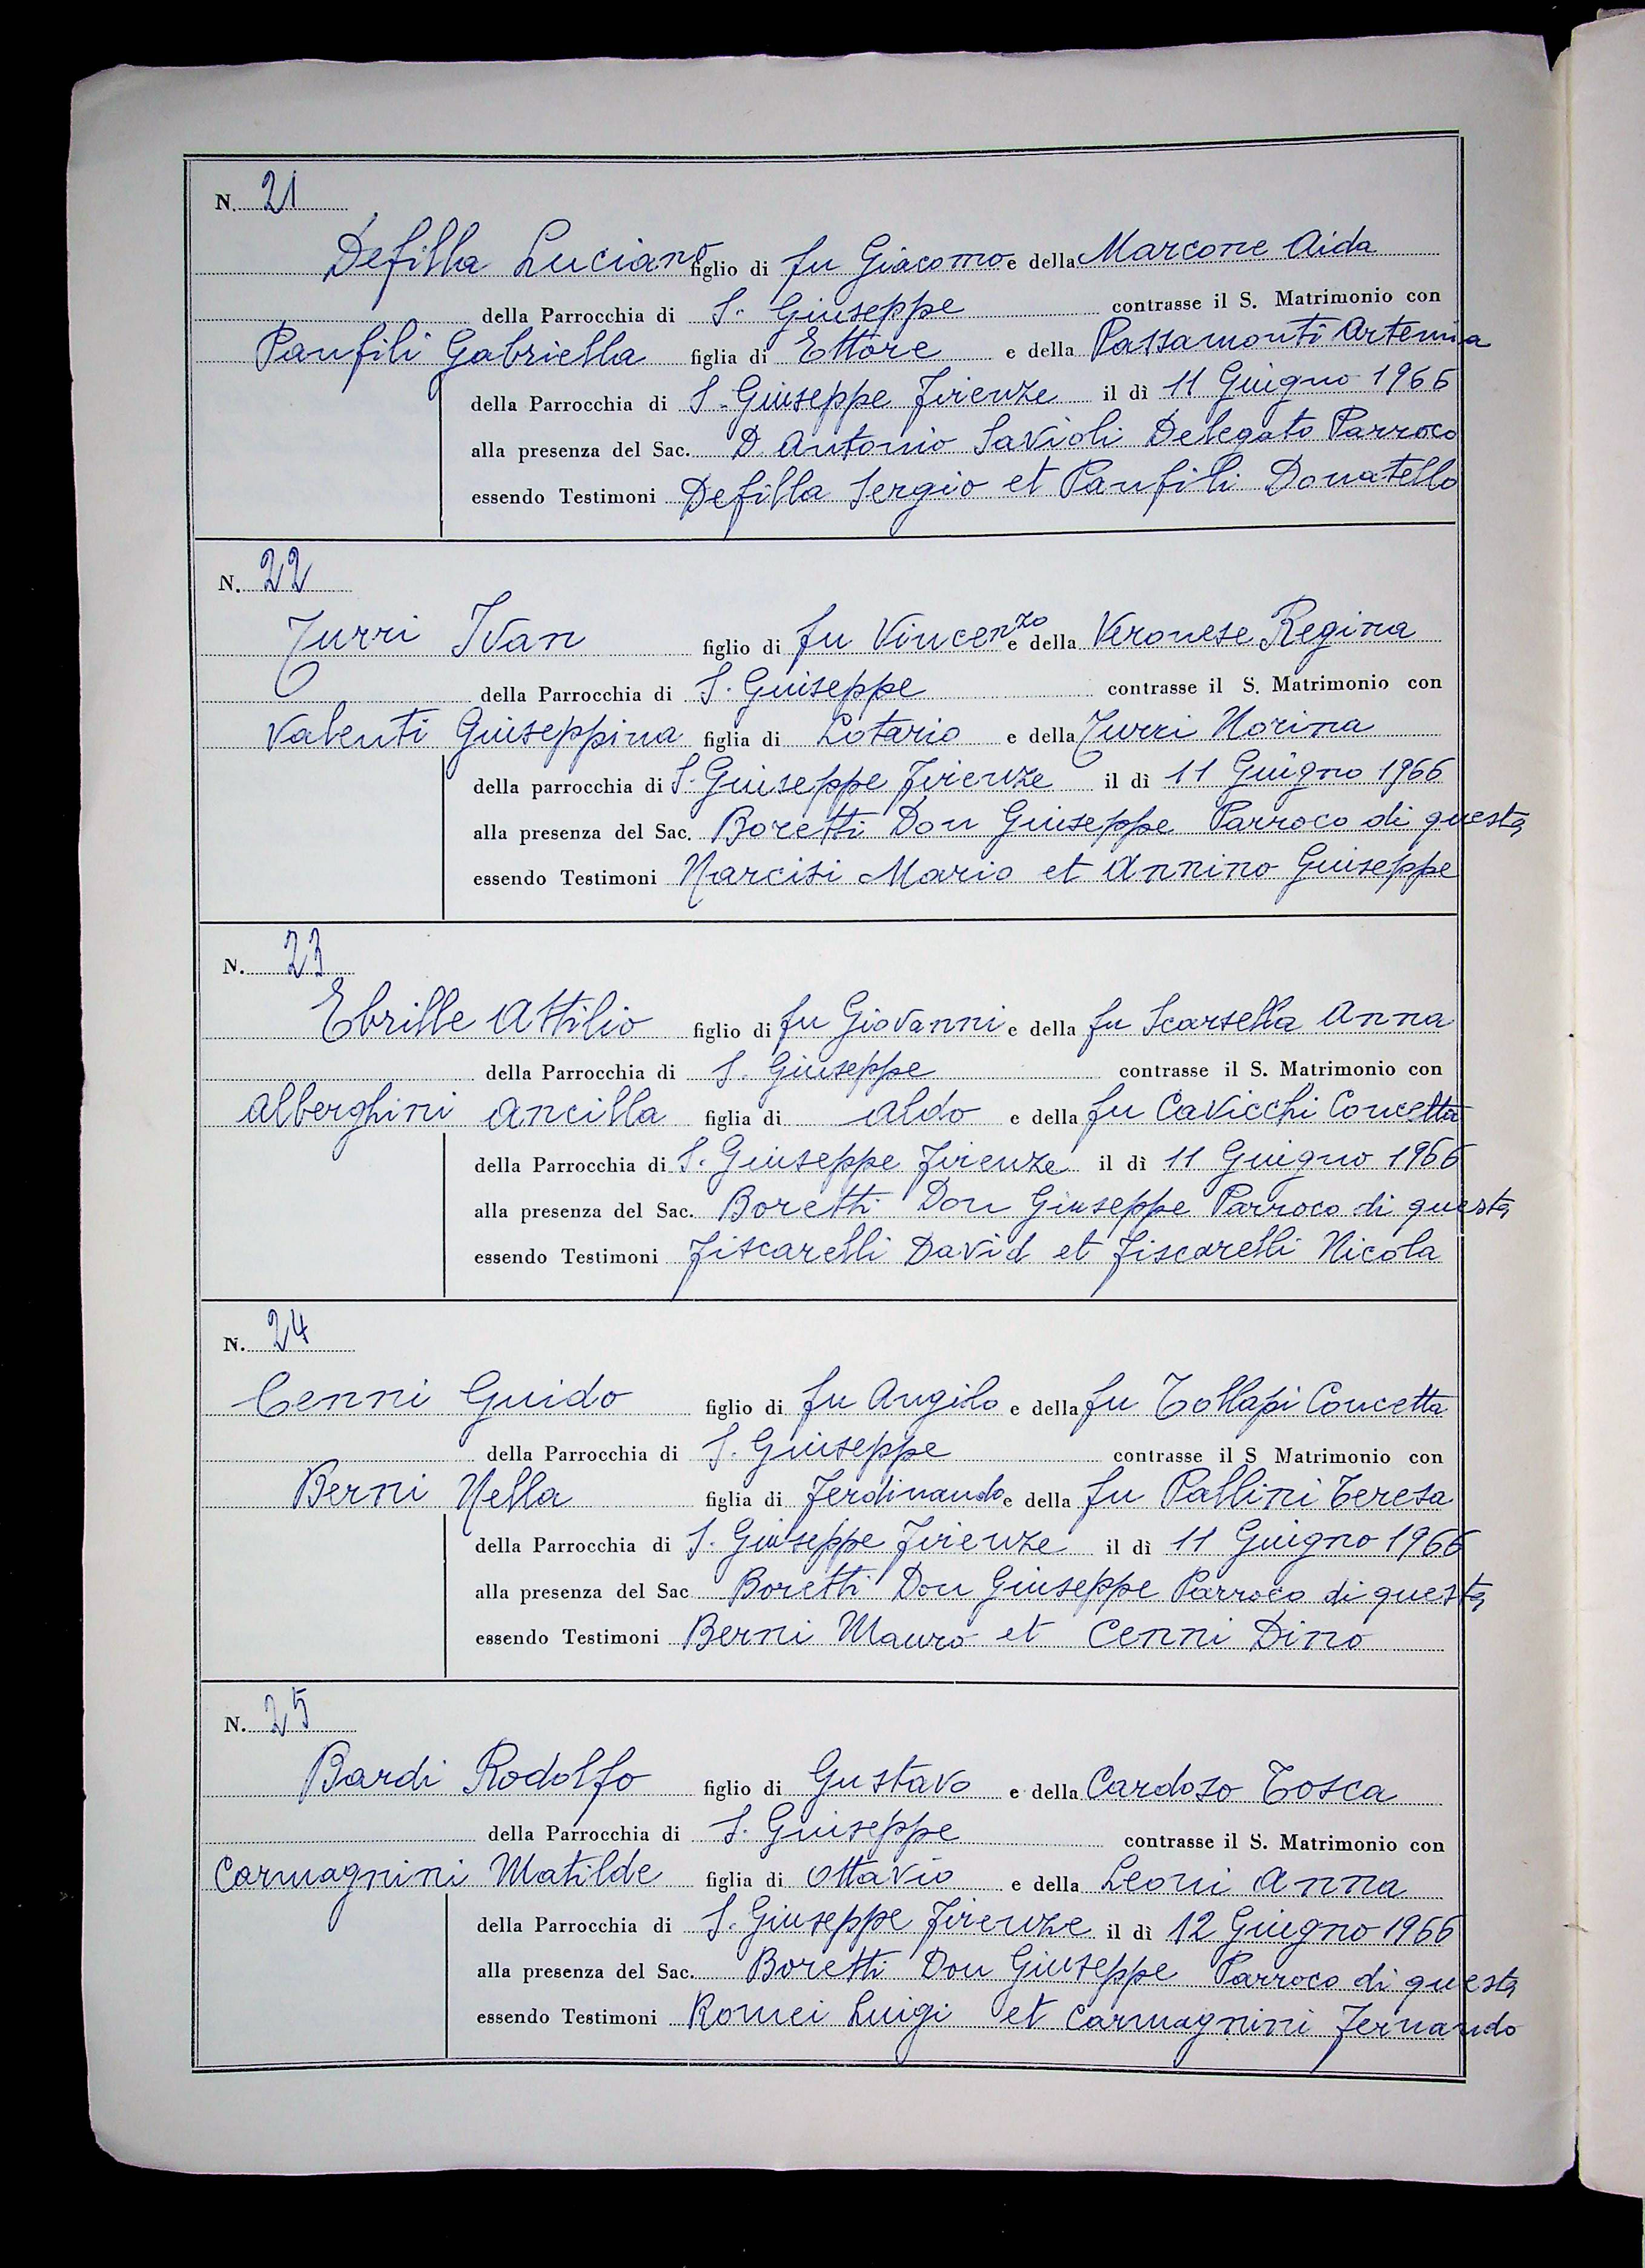 N. 21
Defilla Luciano figlio di fu Giacomo e della Marcone Aida
della Parrocchia di S. Giuseppe contrasse il S. Matrimonio con
Panfili Gabriella figlia di Ettore e della Passamonti Artemia
della Parrocchia di S. Giuseppe Firenze il dì 11 Giugno 1966
alla presenza del Sac. D. Antonio Savioli Delegato Parroco
essendo Testimoni Defilla Sergio et Panfili Donatello
N. 22
Turri Ivan figlio di fu Vincenzo e della Veronese Regina
della Parrocchia di S. Giuseppe contrasse il S. Matrimonio con
Valenti Giuseppina figlia di Lotario e della Turri Norina
della parrocchia di S. Giuseppe Firenze il dì 11 Giugno 1966
alla presenza del Sac. Boretti Don Giuseppe Parroco di questa
essendo Testimoni Narcisi Mario et Annino Giuseppe
N. 23
Ebrille Attilio figlio di fu Giovanni e della fu Scarsella Anna
della Parrocchia di S. Giuseppe contrasse il S. Matrimonio con
Alberghini Ancilla figlia di Aldo e della fu Cavicchi Concetta
della Parrocchia di S. Giuseppe Firenze il dì 11 Giugno 1966
alla presenza del Sac. Boretti Don Giuseppe Parroco di questa
essendo Testimoni Fiscarelli David et Fiscarelli Nicola
N. 24
Cenni Guido figlio di fu Angilo e della fu Tollapi Concetta
della Parrocchia di S. Giuseppe contrasse il S Matrimonio con
Berni Nella figlia di Ferdinando e della fu Pallini Teresa
della Parrocchia di S. Giuseppe Firenze il dì 11 Giugno 1966
alla presenza del Sac Boretti Don Giuseppe Parroco di questa
essendo Testimoni Berni Mauro et Cenni Dino
N. 25
Bardi Rodolfo figlio di Gustavo e della Cardoso Tosca
della Parrocchia di S. Giuseppe contrasse il S. Matrimonio con
Carmagnini Matilde figlia di Ottavio e della Leoni Anna
della Parrocchia di S. Giuseppe Firenze il dì 12 Giugno 1966
alla presenza del Sac. Boretti Don Giuseppe Parroco di questa
essendo Testimoni Romei Luigi et Carmagnini Fernando